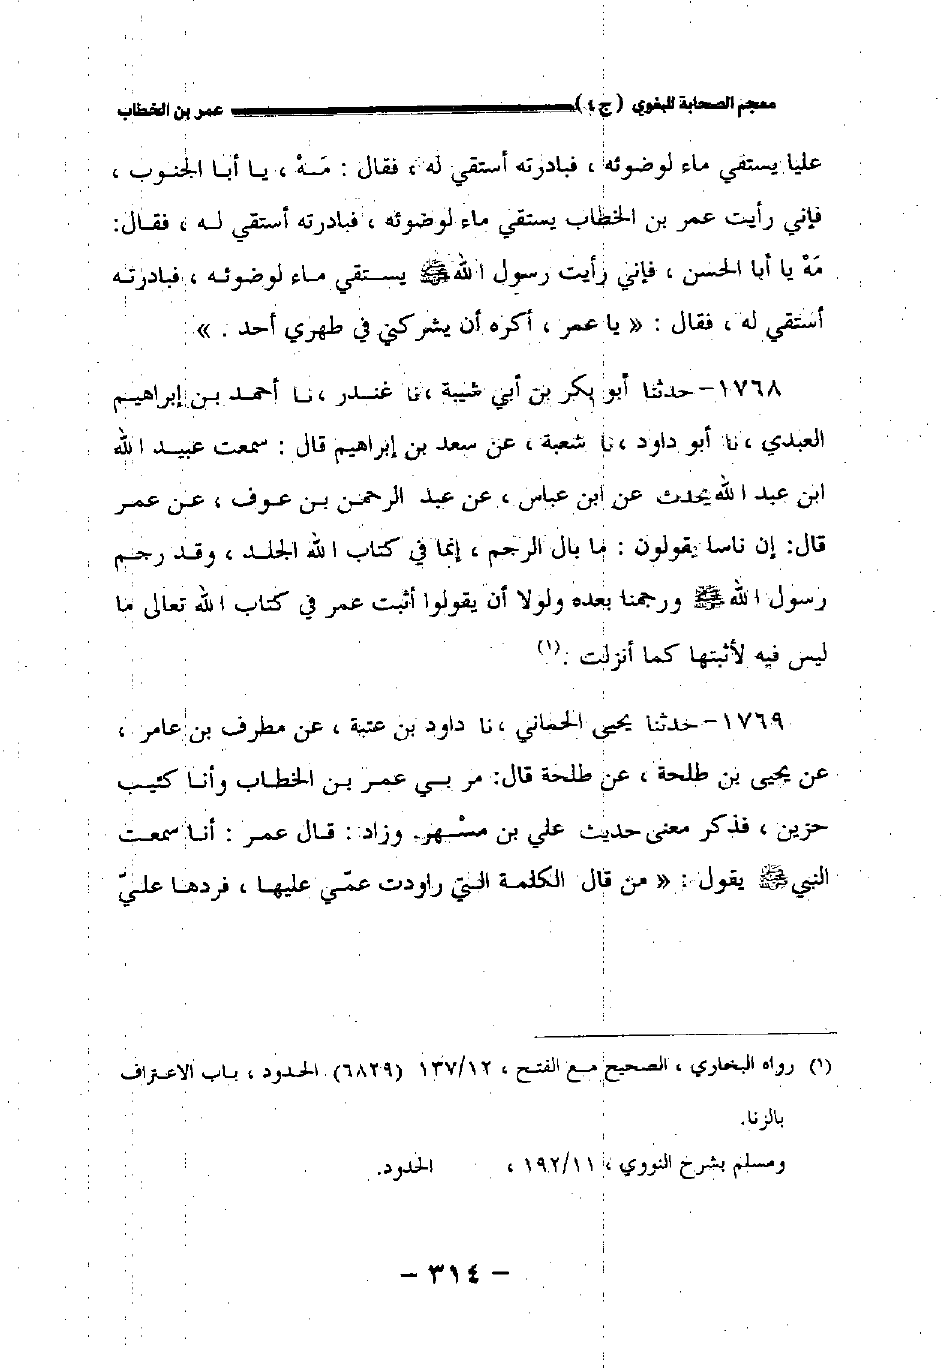 معجم الصحابة للبغوي (ج٤) عمر بن الخطاب
عليا يستقي ماء لوضوئه ، فبادرته أستقي له ، فقال : مَهْ ، يا أبا الجنوب ،
فإني رأيت عمر بن الخطاب يستقي ماء لوضوئه ، فبادرته أستقي له ، فقال:
مَهْ يا أبا الحسن ، فإني رأيت رسول الله ﷺ يستقي ماء لوضوئه ، فبادرته
أستقي له ، فقال : « يا عمر ، أكره أن يشركني في طهري أحد . »
١٧٦٨- حدثنا أبو بكر بن أبي شيبة ،نا غندر ،نا أحمد بن إبراهيم
العبدي ،نا أبو داود ،نا شعبة ، عن سعد بن إبراهيم قال : سمعت عبيد الله
ابن عبد الله يحدث عن ابن عباس ، عن عبد الرحمن بن عوف ، عن عمر
قال: إن ناسا يقولون : ما بال الرجم ، إنما في كتاب الله الجلد ، وقد رجم
رسول الله ﷺ ورجمنا بعده ولولا أن يقولوا أثبت عمر في كتاب الله تعالى ما
ليس فيه لأثبتها كما أنزلت .(١)
١٧٦٩- حدثنا يحيى الحماني ،نا داود بن عتبة ، عن مطرف بن عامر ،
عن يحيى بن طلحة ، عن طلحة قال: مر بي عمر بن الخطاب وأنا كئيب
حزين ، فذكر معنى حديث علي بن مسْهر. وزاد : قال عمر : أنا سمعت
النبي ﷺ يقول : « من قال الكلمة التي راودت عمّي عليها ، فردها عليّ
(١) رواه البخاري ، الصحيح مع الفتح ، ١٣٧/١٢ (٦٨٢٩) الحدود ، باب الاعتراف
بالزنا.
ومسلم بشرح النووي ، ١٩٢/١١ ، الحدود.
- ٣١٤ -